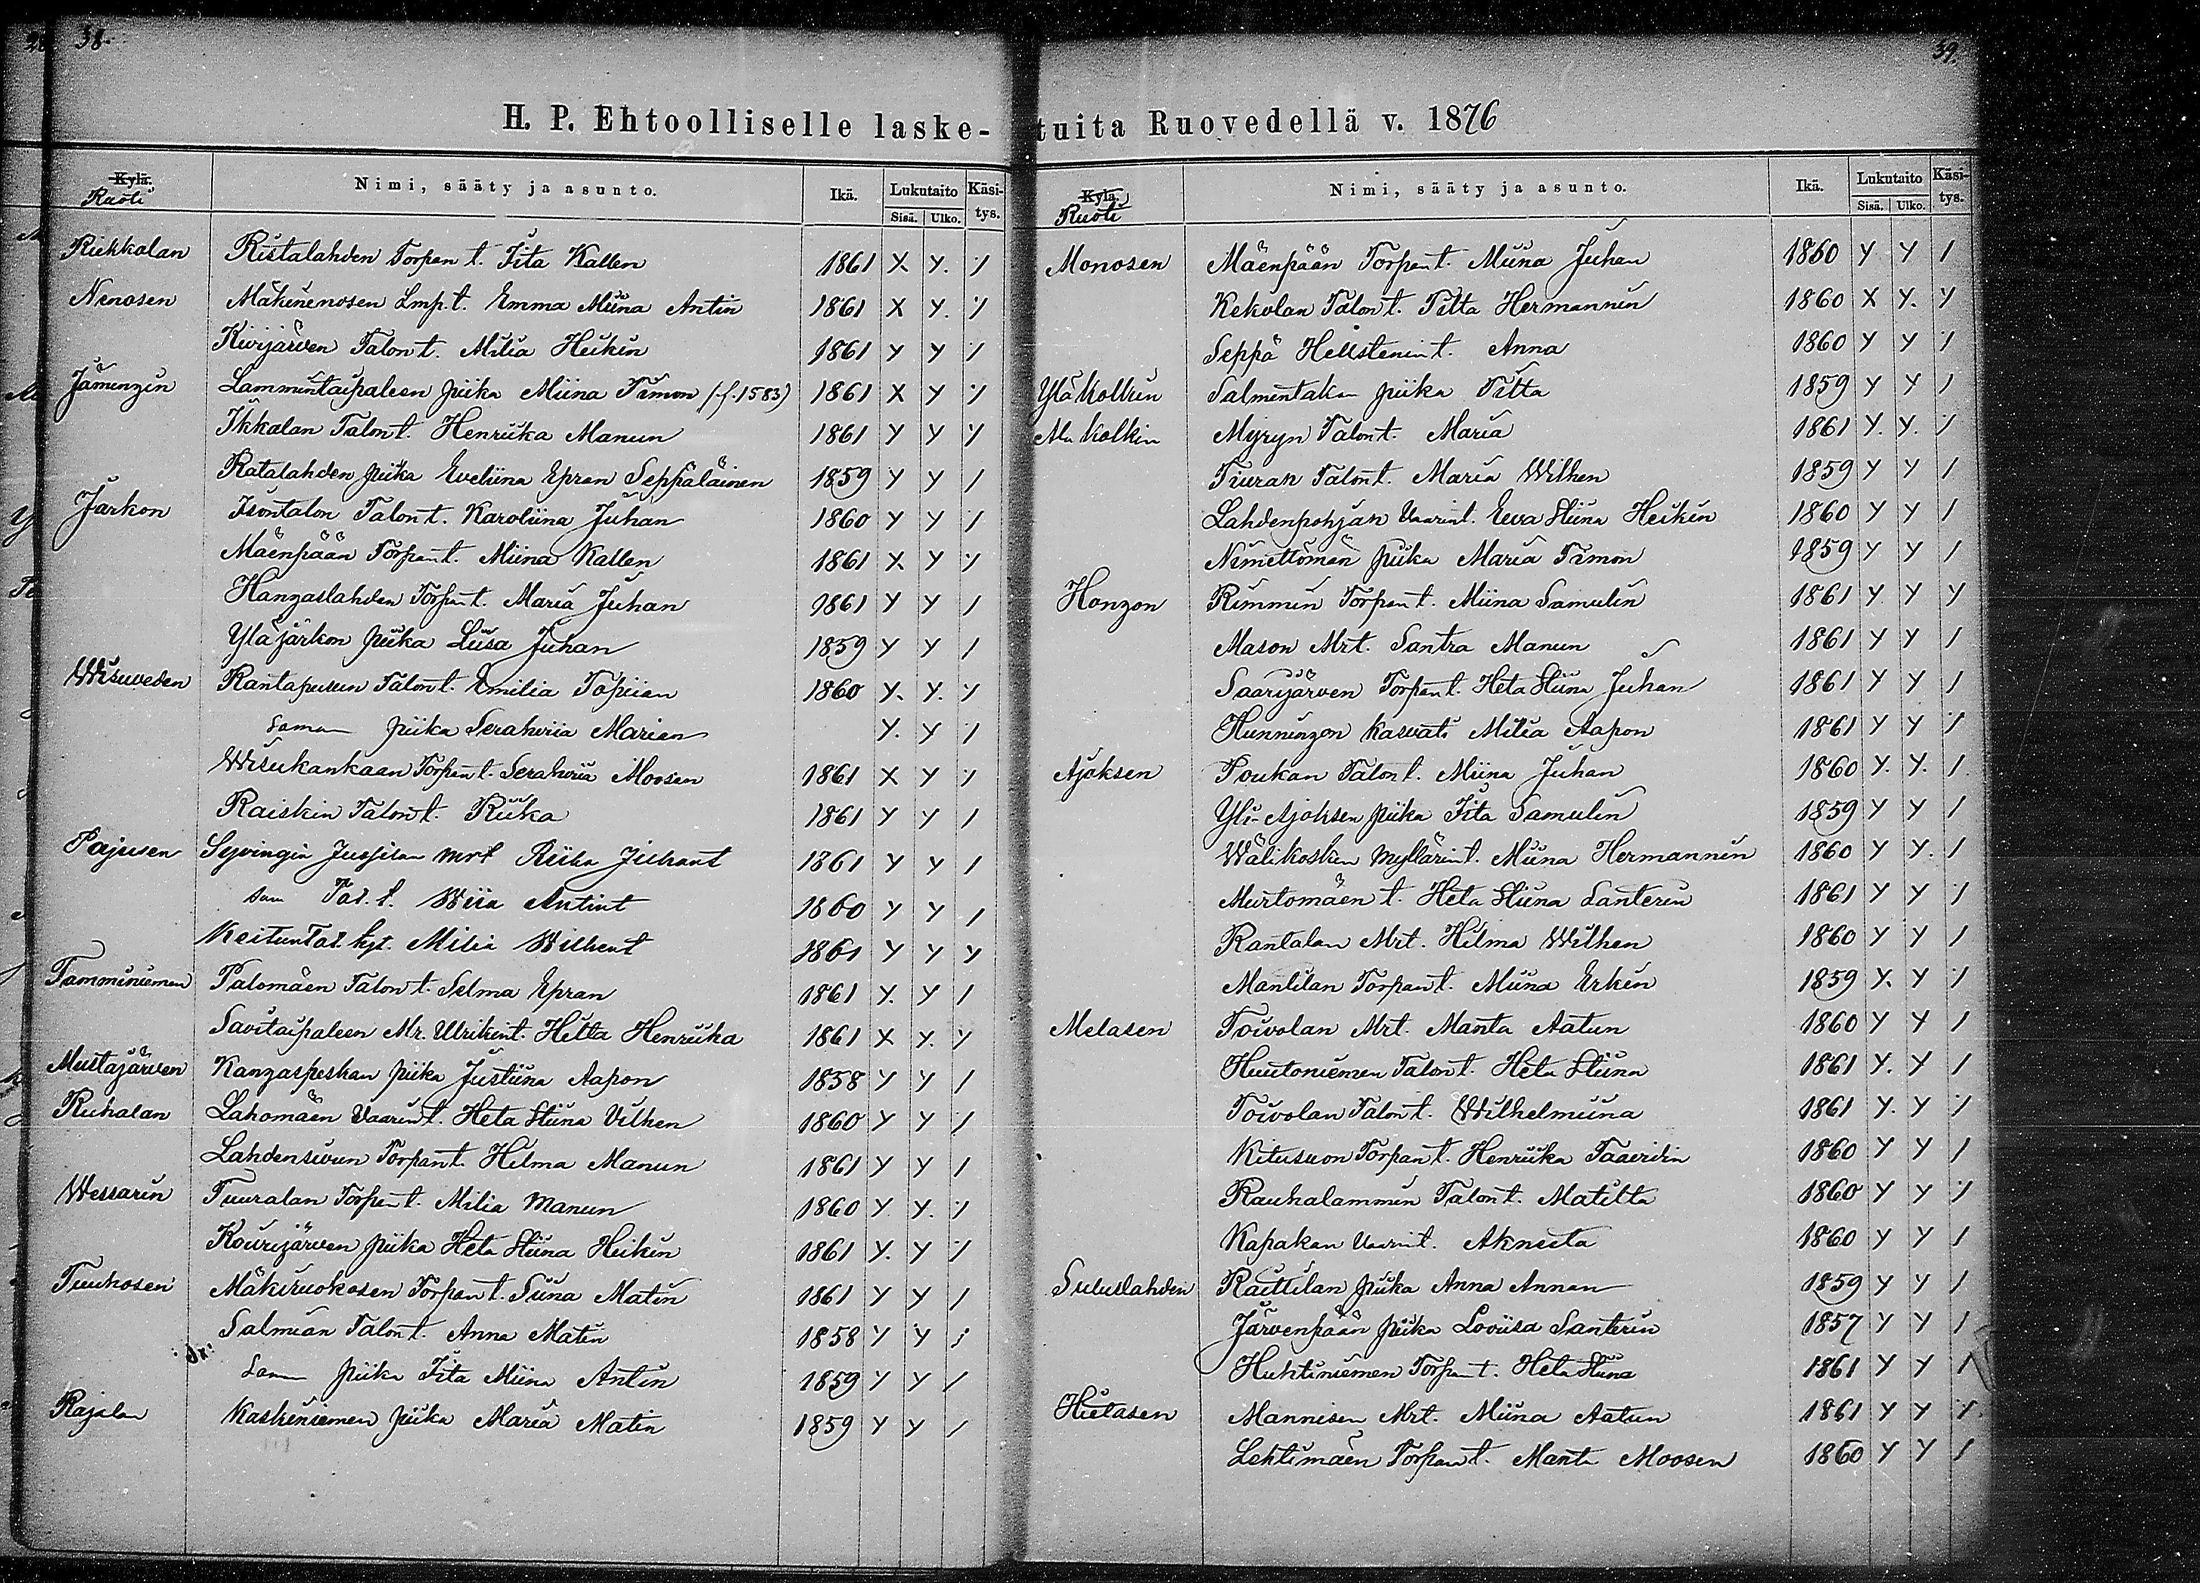 38.
H. P. Ehtoolliselle laske-
Kylä. Nimi, sääty ja asunto. Ikä. Lukutaito Käsi-
Ruoti Sisä. Ulko. tys.
Riikkolan Ristalahden Torpan t. Fita Kallen 1861 X Y. ·/
Nenosen Mäkinenosen Lmp. t. Emma Miina Antin 1861 X Y. ·/
Kivijärven Talon t. Milia Heikin 1861 Y Y ·/
Jäminzin Lammintaipaleen piika Miina Timon (f. 1583) 1861 X Y ·/
Ikkalan Talon t. Henriika Manun 1861 Y Y Y
Ratalahden piika Eveliina Epran Seppäläinen 1859 Y Y /
Jarkon Isontalon Talon t. Karoliina Juhan 1860 Y Y ·/
Mäenpään Torpan t. Miina Kallen 1861 X Y ·/
Hangaslahden Torpan t. Maria Juhan 1861 Y Y /
Yläjärkon piika Liisa Juhan 1859 Y Y /
Wisuveden Rantapusun Talon t. Emilia Topiian 1860 Y. Y. ·/
Saman piika Serahviia Marian Y. Y /
Wisukankaan Torpan t. Serahviia Moosen 1861 X Y ·/
Raiskin Talon t. Riika 1861 Y Y /
Pajusen Syvingin Jussilan mrt Riika Juhant 1861 Y Y /
sam Tal. t. Wiia Antint 1860 Y Y /
Keitun Tal. kyt. Milia Wilhent 1861 Y Y Y
Tamminiemen Palomäen Talon t. Selma Epran 1861 Y. Y /
Savitaipaleen Mr. Ulrikint. Hetta Henriika 1861 X Y. Y
Mustajärven Kangaspeskan piika Justiina Aapon 1858 Y Y /
Ruhalan Lahomäen Vaarin t. Heta Stiina Vilhen 1860 Y Y ·/
Lahdensivun Torpan t. Hilma Manun 1861 Y Y /
Wessarin Tuuralan Torpan t. Milia Manun 1860 Y Y. ·/
Kourijärven piika Heta Stiina Heikin 1861 Y. Y ·/
Tuuhosen Mäkiruokosen Torpan t. Siina Matin 1861 Y Y /
Salmian Talon t. Anna Matin 1858 Y Y ·/
Saman piika Fita Miina Antin 1859 Y Y /
Rajalan Kaskiniemen piika Maria Matin 1859 Y Y /
39.
tuita Ruovedellä v. 1876
Kylä. Nimi, sääty ja asunto. Ikä. Lukutaito Käsi-
Ruoti Sisä. Ulko. tys.
Monosen Mäenpään Torpan t. Miina Juhan 1860 Y Y /
Kekolan Talon t. Titta Hermannin 1860 X Y. Y
Seppä Hellstenin t. Anna 1860 Y Y ·/
Ylä Kolkin Salmentakan piika Titta 1859 Y Y /
Ala Kolkin Myryn Talon t. Maria 1861 Y. Y. ·/
Tiuran Talon t. Maria Wilhen 1859 Y Y /
Lahdenpohjan Vaarin t. Eeva Stiina Heikin 1860 Y Y /
Nimettömän piika Maria Timon 1859 Y Y /
Honzon Rimmin Torpan t. Miina Samulin 1861 Y Y Y
Mason Mrt. Santra Manun 1861 Y Y /
Saarijärven Torpan t. Heta Stiina Juhan 1861 Y Y /
Hunningon kasvati Milia Aapon 1861 Y Y ·/
Ajoksen Poukan Talon t. Miina Juhan 1860 Y. Y. /.
Yli-Ajoksen piika Fita Samulin 1859 Y Y /
Wälikosken Myllärin t. Miina Hermannin 1860 Y Y. /
Murtomäen t. Heta Stiina Santerin 1861 Y Y ·/
Rantalan Mrt. Hilma Wilhen 1860 Y Y /
Mantilan Torpan t. Miina Erkin 1859 Y. Y ·/
Melasen Toivolan Mrt. Manta Aatun 1860 Y Y /
Huutoniemen Talon t. Heta Stiina 1861 Y. Y /
Toivolan Talon t. Wilhelmiina 1861 Y. Y ·/
Kitusuon Torpan t. Henriika Taavidin 1860 Y Y /
Rauhalammin Talon t. Matilta 1860 Y Y ·/
Kapakan Vaarin t. Akneeta 1860 Y Y /
Suluslahden Raittilan piika Anna Annan 1859 Y Y /
Järvenpään piika Loviisa Santerin 1857 Y Y /
Huhtiniemen Torpan t. Heta Stiina 1861 Y Y /
Hietasen Mannisen Mrt. Miina Aatun 1861 Y Y Y.
Lehtimäen Torpan t. Manta Moosen 1860 Y Y /